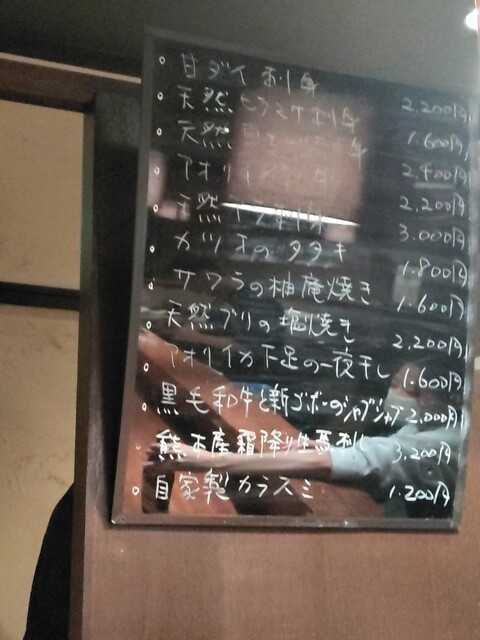 。甘ダイ刺身 2.200円
。天然ヒラメ刺身 1.600円
。天然 刺身 2.400円
。アオリイカ刺身 2.200円
。天然 刺身 3.000円
。カツオのタタキ 1.800円
。サワラの柚庵焼き 1.600円
。天然ブリの塩焼き 2.200円
。アオリイカ下足の一夜干し 1.600円
。黒毛和牛と新ゴボーのシャブシャブ 2.000円
。熊本産霜降り生馬刺し 3.200円
。自家製カラスミ 1.200円